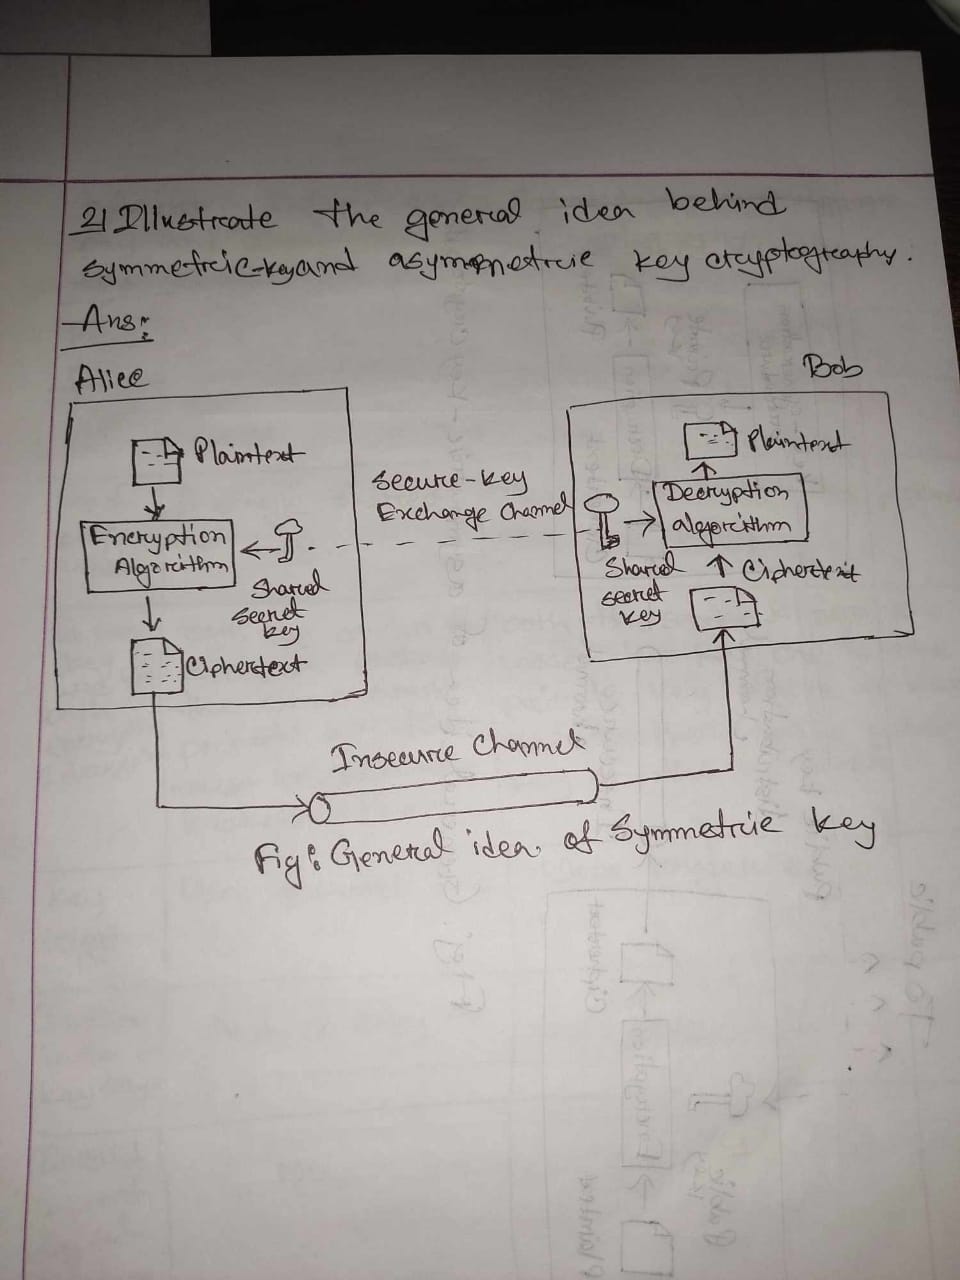 21 Illustrate the general idea behind
symmetric-key and asymmetric key cryptography.
Ans:
Alice
Bob
Plaintext
Encryption
Algorithm
Shared
secret
key
Ciphertext
Secure-key
Exchange Channel
Plaintext
Decryption
algorithm
Shared
secret
key
Ciphertext
Insecure Channel
Fig: General idea of Symmetric key